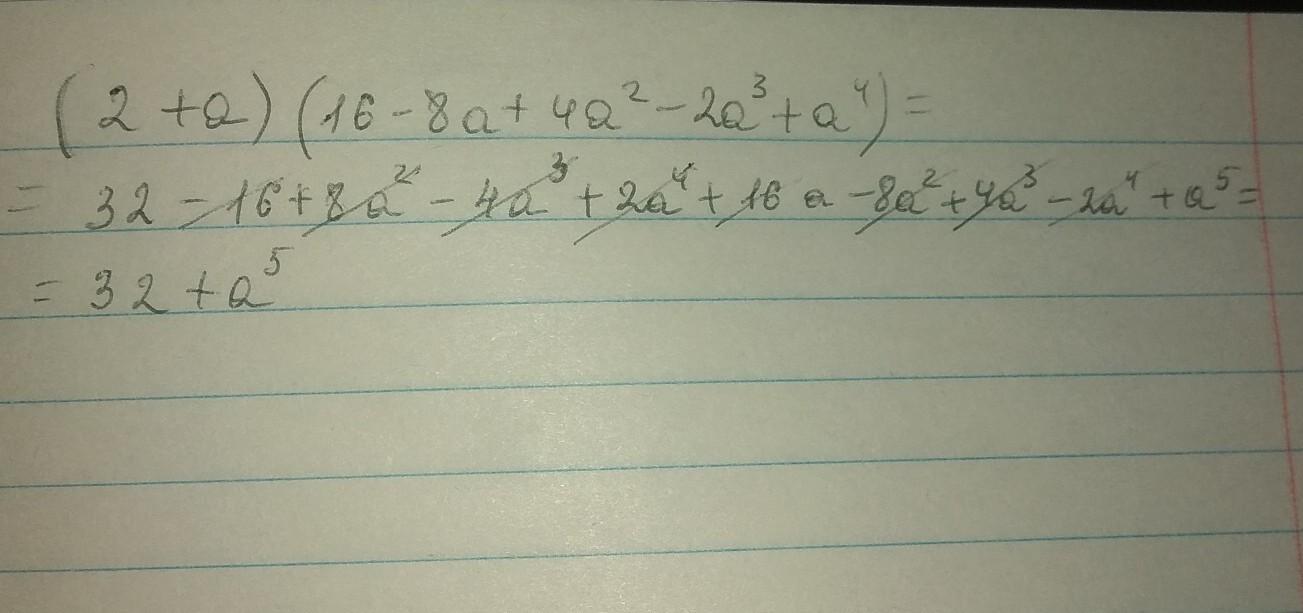 (2 + a)(16 - 8a + 4a² - 2a³ + a⁴) =
= 32 - 16 + 8a² - 4a³ + 2a⁴ + 16 a - 8a² + 4a³ - 2a⁴ + a⁵ =
= 32 + a⁵